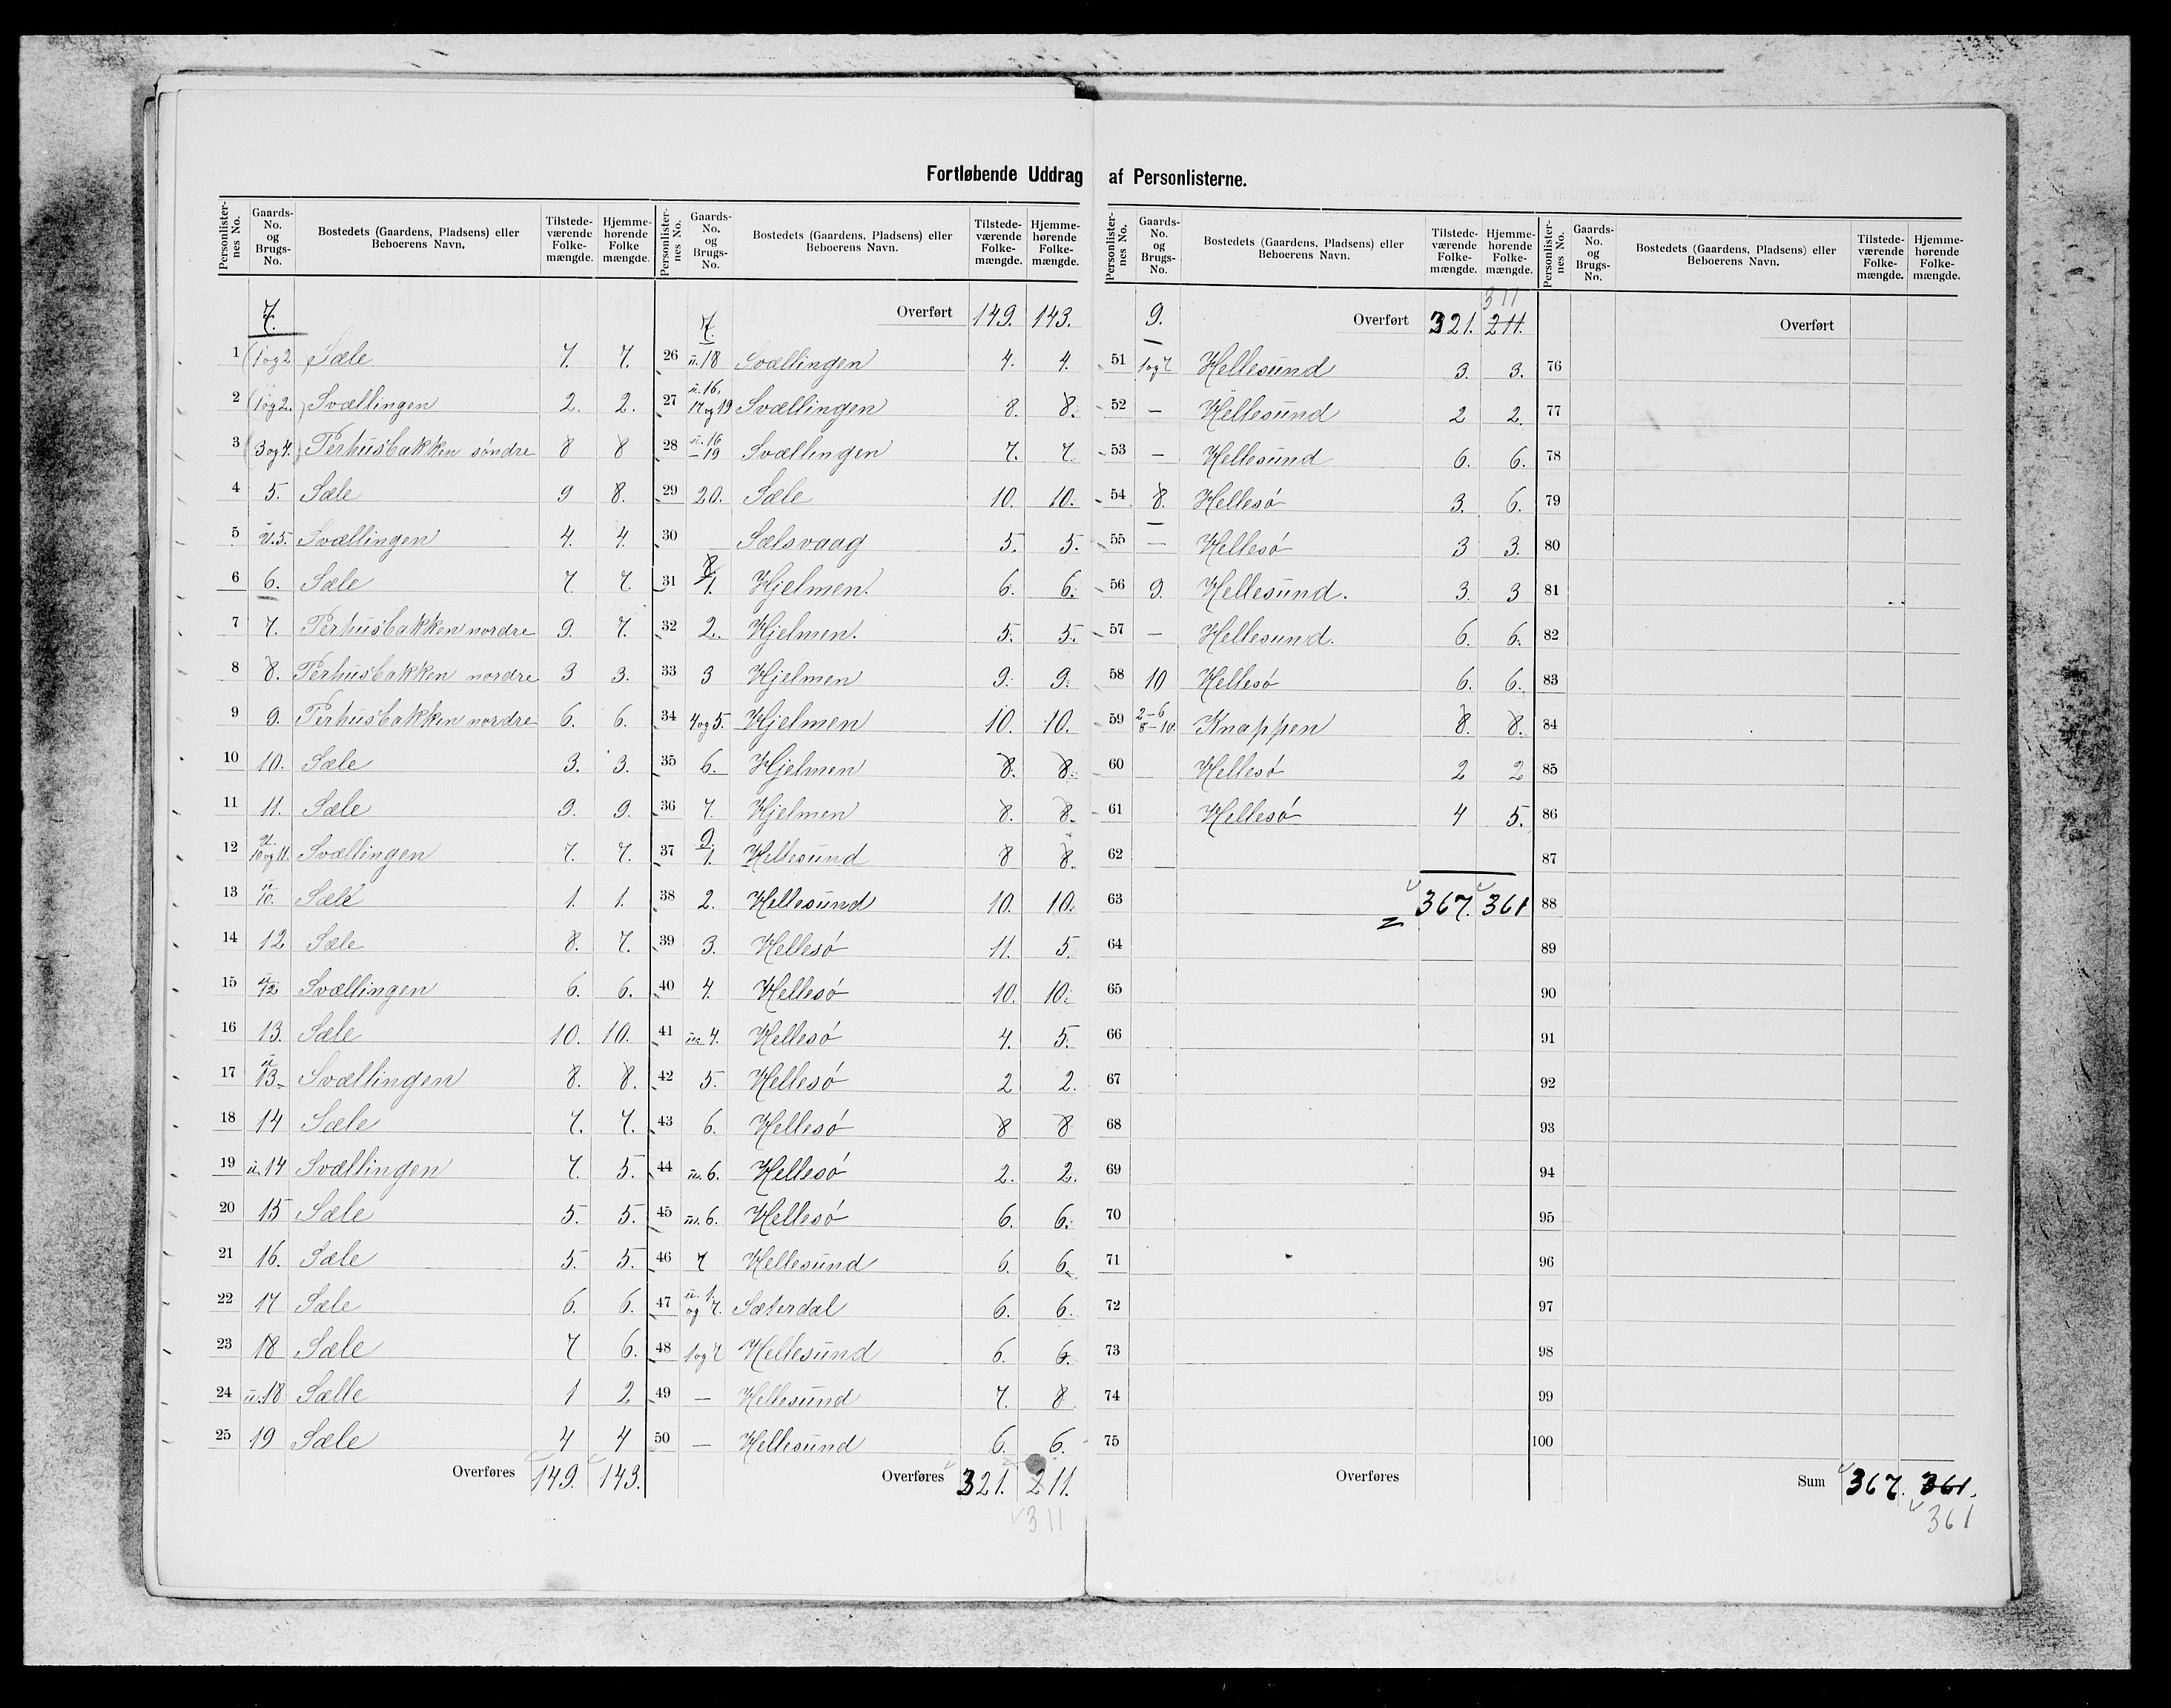 Fortløbende Uddrag af Personlisterne.
Personlisternes No. | Gaards-No. og Brugs-No. | Bostedets (Gaardens, Pladsens) eller Beboerens Navn. | Tilstedeværende Folkemængde. | Hjemmehørende Folkemængde.
7.
1 | 1 og 2 | Sæle | 7. | 7.
2 | 1 og 2. | Svællingen | 2. | 2.
3 | 3 og 4. | Perhusbakken söndre | 8 | 8
4 | 5. | Sæle | 9 | 8.
5 | u. 5. | Svællingen | 4. | 4.
6 | 6. | Sæle | 7 | 7.
7 | 7. | Perhusbakken nordre | 9. | 7.
8 | 8. | Perhusbakken nordre | 3 | 3.
9 | 9. | Perhusbakken nordre | 6. | 6.
10 | 10. | Sæle | 3. | 3.
11 | 11. | Sæle | 9. | 9.
12 | u. 10 og 11. | Svællingen | 7. | 7.
13 | u. 10. | Sæle | 1. | 1.
14 | 12 | Sæle | 8. | 7.
15 | u. 12 | Svællingen | 6. | 6.
16 | 13. | Sæle | 10. | 10.
17 | u. 13. | Svællingen | 8. | 8.
18 | 14 | Sæle | 7. | 7.
19 | u. 14 | Svællingen | 7. | 5.
20 | 15 | Sæle | 5. | 5.
21 | 16. | Sæle | 5. | 5.
22 | 17 | Sæle | 6. | 6.
23 | 18 | Sæle | 7 | 6.
24 | u. 18 | Sælle | 1 | 2
25 | 19 | Sæle | 4 | 4
Overføres 149. 143.
7. Overført 149. 143.
26 | u. 18 | Svællingen | 4. | 4.
27 | u. 16, 17 og 19 | Svællingen | 8. | 8.
28 | u. 16 - 19 | Svællingen | 7. | 7.
29 | 20. | Sæle | 10. | 10.
30 | Sælsvaag | 5. | 5.
8.
31 | 1. | Hjelmen. | 6. | 6.
32 | 2. | Hjelmen. | 5. | 5.
33 | 3 | Hjelmen | 9. | 9.
34 | 4 og 5. | Hjelmen | 10. | 10.
35 | 6. | Hjelmen | 8. | 8.
36 | 7. | Hjelmen | 8. | 8.
9.
37 | 1. | Hellesund | 8 | 8.
38 | 2. | Hellesund | 10. | 10.
39 | 3. | Hellesö | 11. | 5.
40 | 4. | Hellesö | 10. | 10.
41 | u. 4. | Hellesö | 4. | 5.
42 | 5. | Hellesö | 2 | 2.
43 | 6. | Hellesö | 8 | 8
44 | u. 6. | Hellesö | 2. | 2.
45 | u. 6. | Hellesö | 6. | 6.
46 | 7 | Hellesund | 6. | 6.
47 | u. 1. og 7. | Sæterdal | 6. | 6.
48 | 1 og 7 | Hellesund | 6. | 6.
49 | — | Hellesund | 7. | 8
50 | — | Hellesund | 6. | 6.
Overføres 321. 211.
311
9. Overført 321. 211. 311
51 | 1 og 7 | Hellesund | 3. | 3.
52 | — | Hellesund | 2 | 2.
53 | — | Hellesund | 6. | 6.
54 | 8. | Hellesö | 3. | 6.
55 | — | Hellesö | 3 | 3.
56 | 9. | Hellesund. | 3. | 3
57 | — | Hellesund. | 6. | 6.
58 | 10 | Hellesö | 6. | 6.
59 | 2-6 8-10. | Knappen | 8. | 8.
60 | Hellesö | 2 | 2
61 | Hellesö | 4 | 5.
62
63 | 367. | 361
64
65
66
67
68
69
70
71
72
73
74
75
Overføres
Overført
76
77
78
79
80
81
82
83
84
85
86
87
88
89
90
91
92
93
94
95
96
97
98
99
100
Sum 367. 361.
361